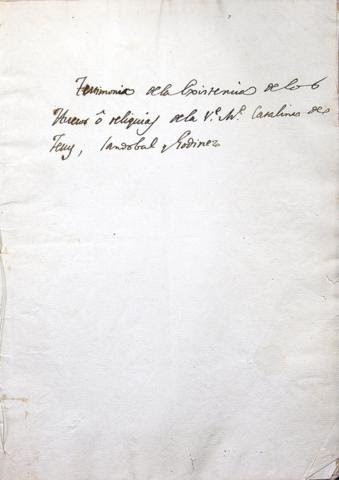 Testimonio de la Existencia de los
Huesos ô reliquias de la Ve. Me. Catalina de
Jesus, Sandobal y Godinez